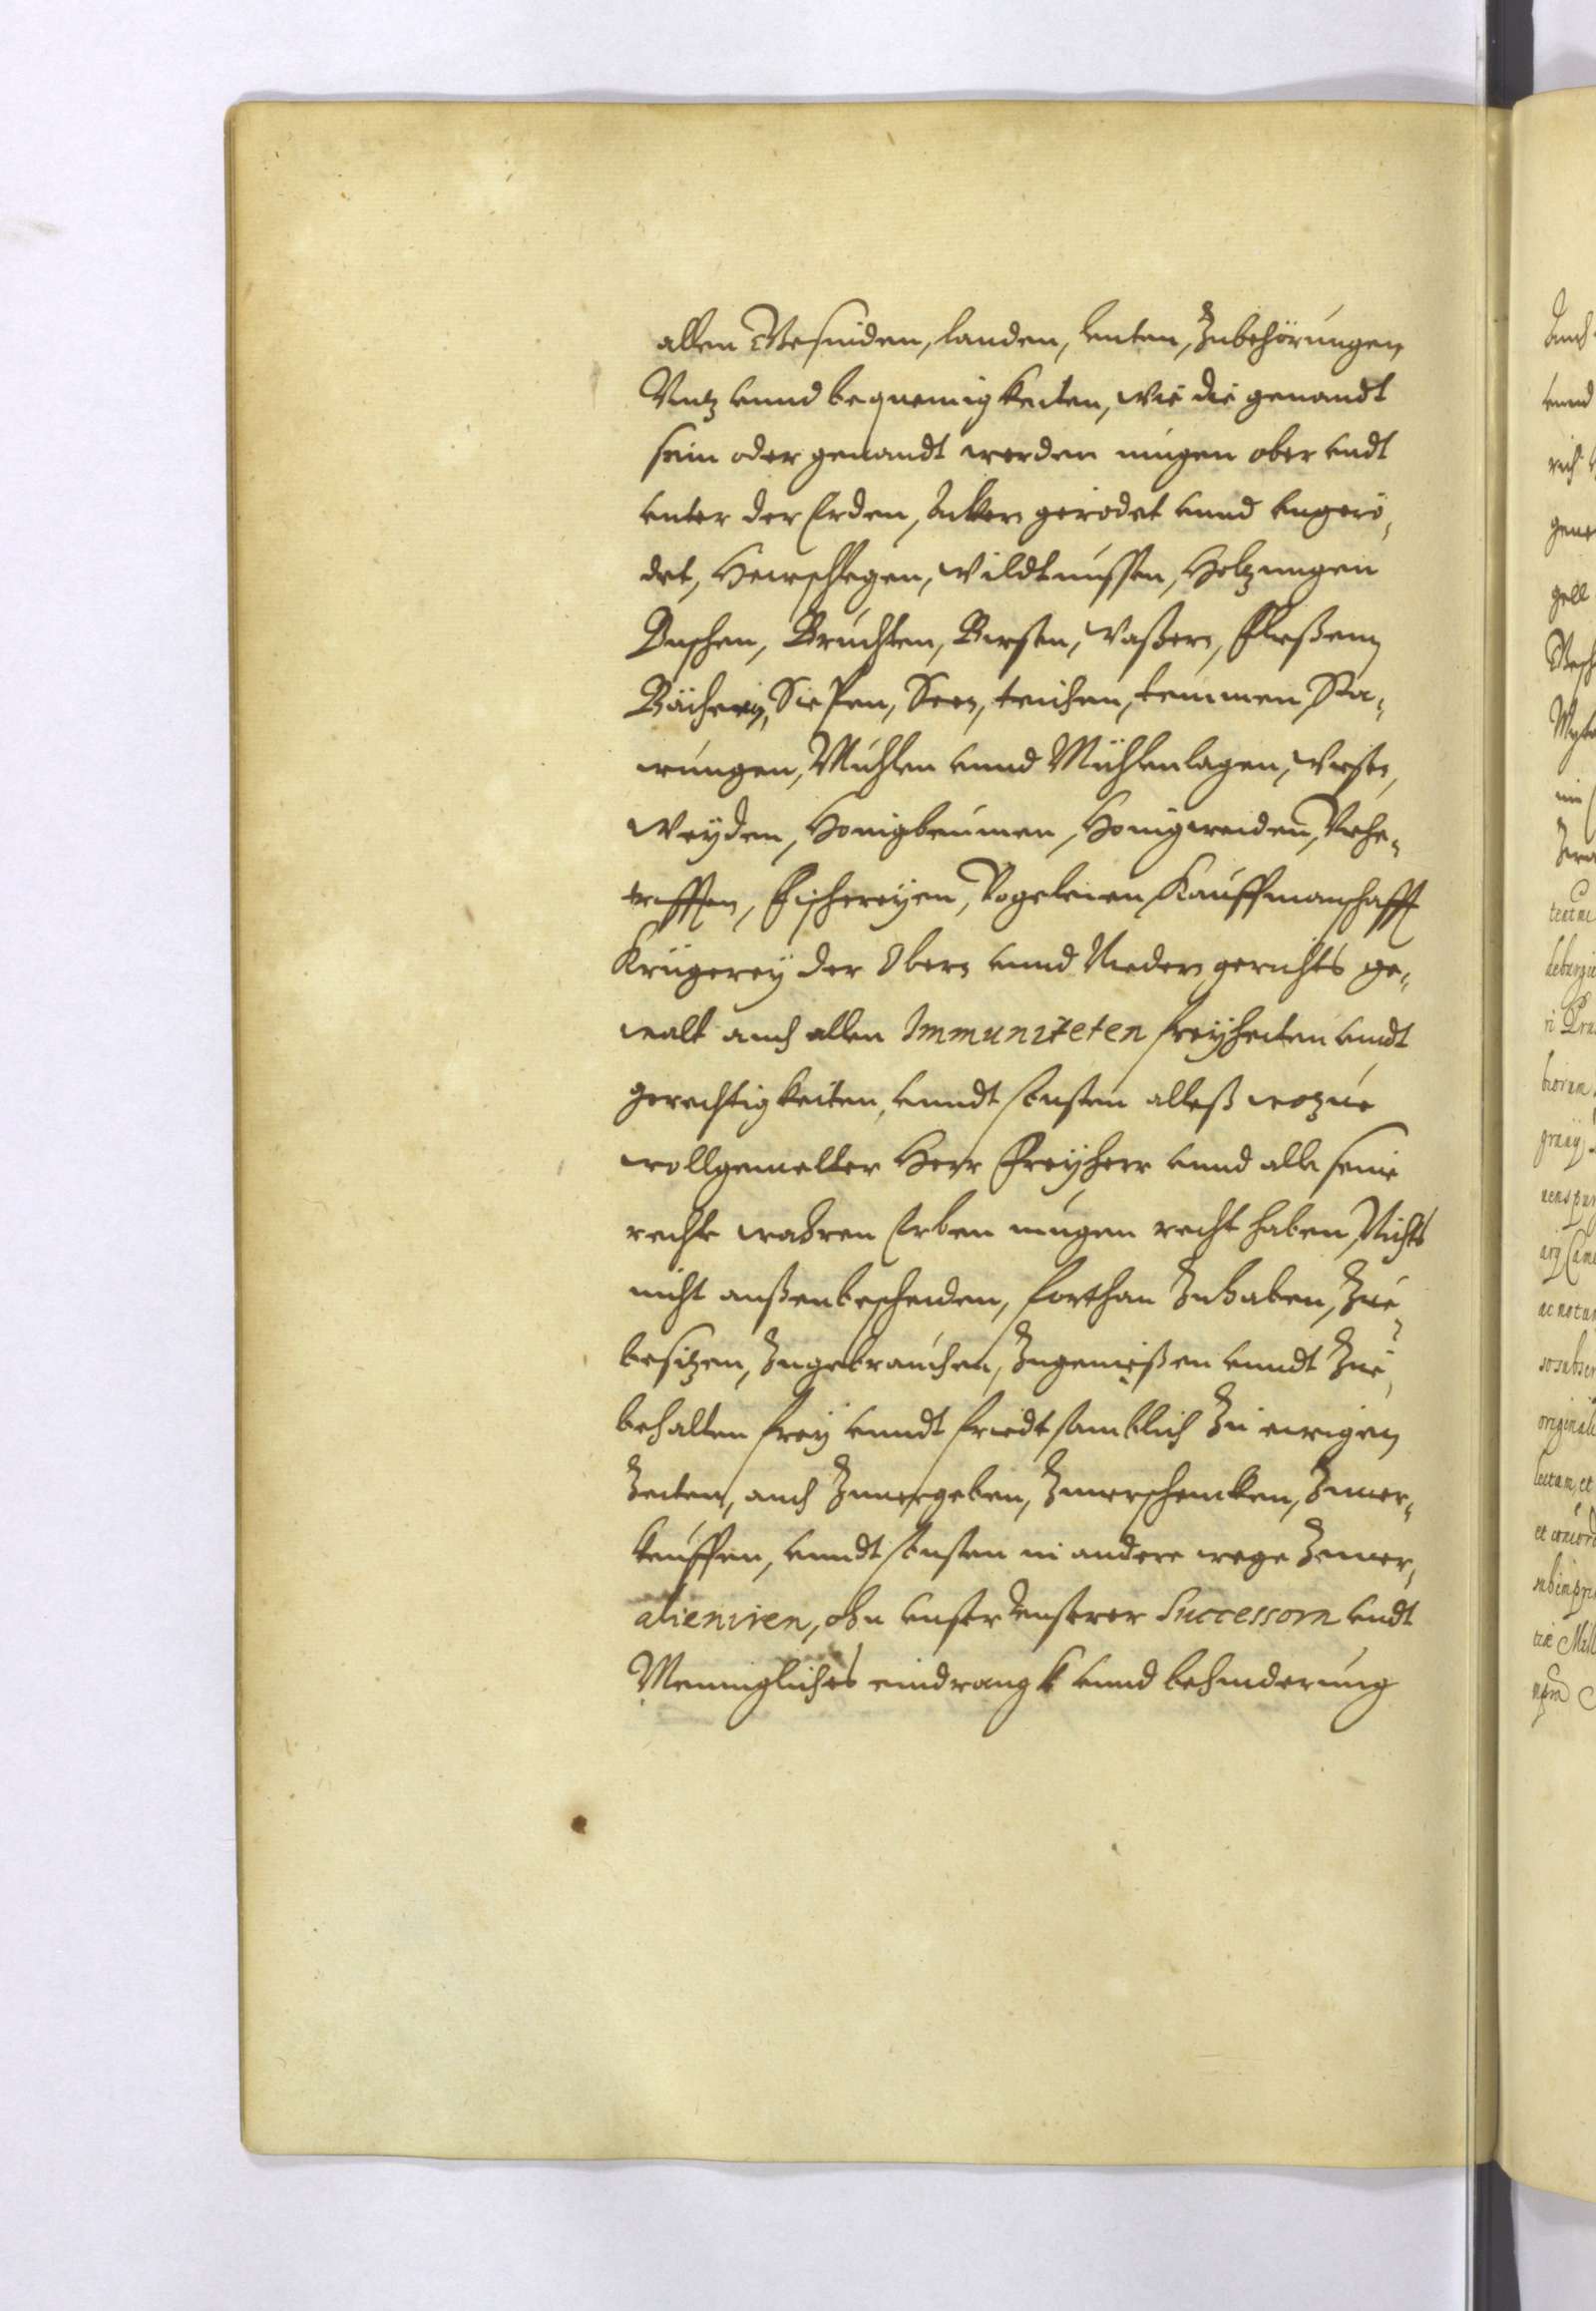 allen Gesinden, landen, leuten, Zubehörungen
Nutz unnd bequemigkeiten, wie die genandt
sein oder genandt werden mügen ober undt
unter der Erden, Acker gerodet unnd ungero,
det, Hewschlegen, Wildtnussen, Holtzungen
Buschen, Bruchten, Birsen, Waßern, Fleßenn
Bächenn, Siepen, Seen, teichen, temmen Sta-
wungen, Mühlen unnd Mühlenlagen, Weste,
Weyden, Honigbeumen, Honigweiden, Vehe-
trifften, Fischereyen, Vogeleien Kauffmanschafft
Krügerey der Obern unnd Niedern gerichts ge-
walt auch allen Immuniteten freyheiten undt
gerechtigkeiten, unndt sonsten alleß wozue
wollgemelter Herr Freyherr unnd alle seine
rechte wahren Erben mügen recht haben, Nichts
nicht außenbescheiden, forthan Zuhaben, Zue
besitzen, Zugebrauchen, Zugenießen unndt Zue
behalten frey unndt friedtsamblich Zu ewigen
Zeiten, auch Zuuergeben, Zuuerschencken, Zuuer-
keuffen, unndt sonsten in andere wege Zuuer,
alieniren, ohn unser unserer Successorn undt
Menniglichs eindrangk unnd behinderung